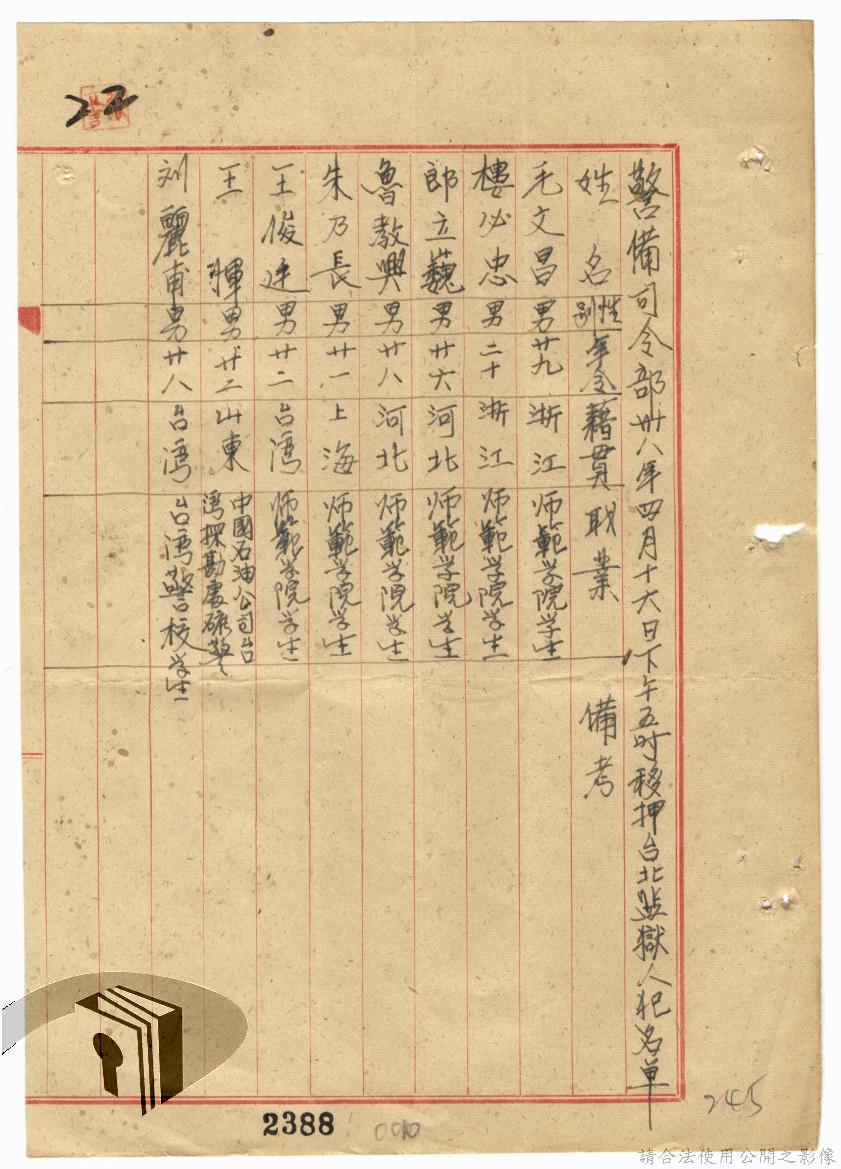 警備司令部卅八年四月十六日下午五时移押台北监獄人犯名单
姓名 性别 年令 藉貫 职業 備考
毛文昌 男 廿九 浙江 师範学院学生
樓必忠 男 二十 浙江 师範学院学生
郎立巍 男 廿六 河北 师範学院学生
魯教興 男 廿八 河北 师範学院学生
朱乃長 男 廿一 上海 师範学院学生
王俊廷 男 廿二 台湾 师範学院学生
王輝 男 廿二 山東 中國石油公司台湾探勘處礦警
刘麗甫 男 廿八 台湾 台湾警校学生
22
2388
245
請合法使用公開之影像